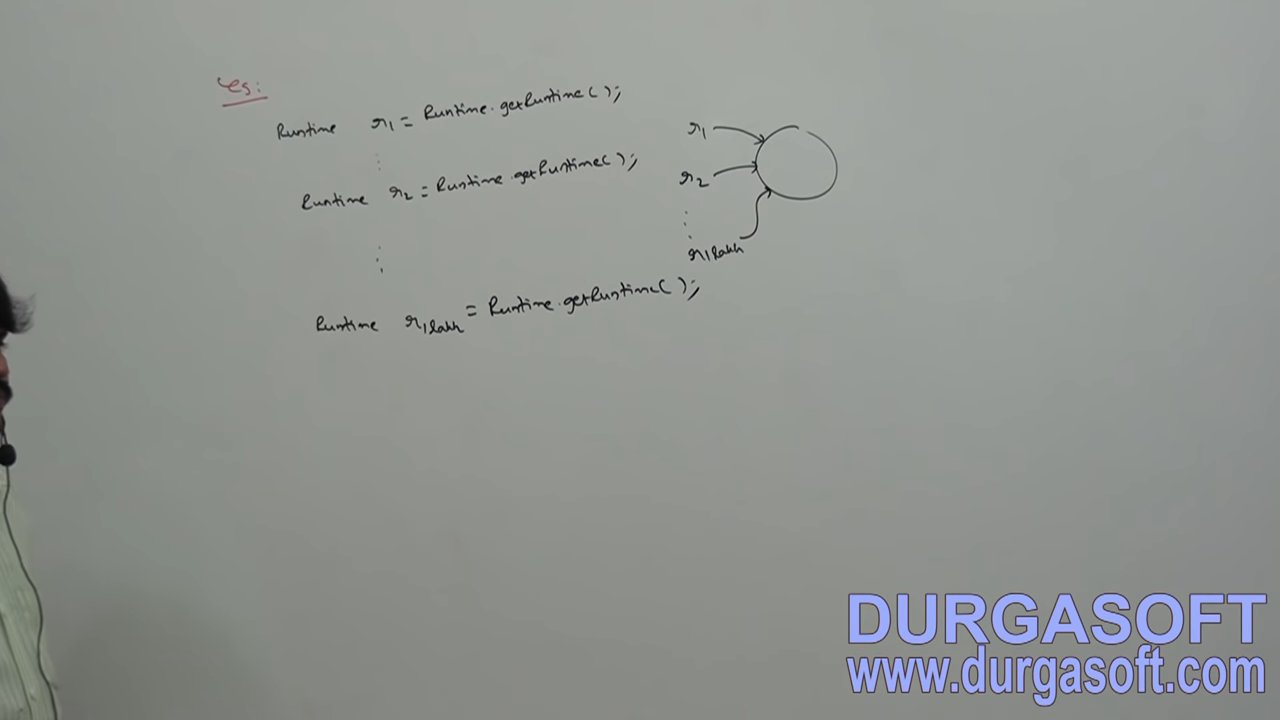 Eg:
Runtime r1 = Runtime.getRuntime();
Runtime r2 = Runtime.getRuntime();
Runtime r1lakh = Runtime.getRuntime();
r1
r2
r1lakh
DURGASOFT
www.durgasoft.com